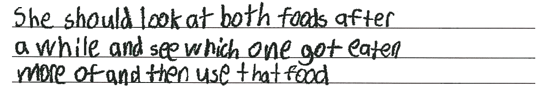 She should look at both foods after
a while and see which one got eaten
more of and then use that food